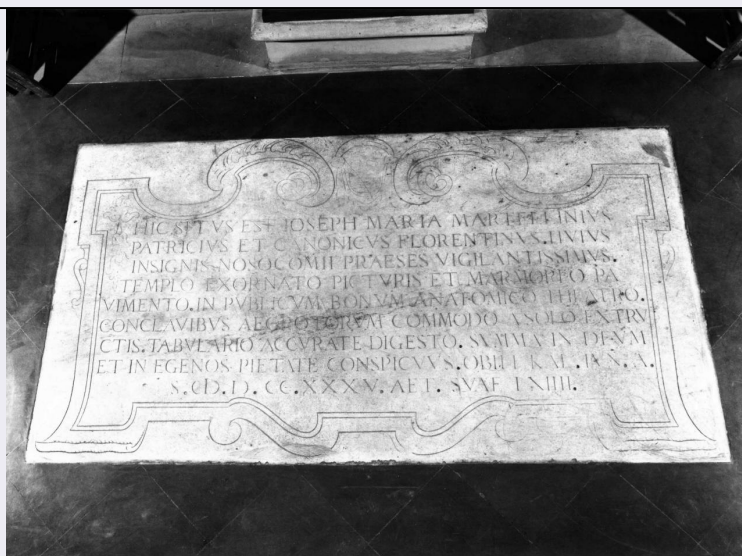 HIC SITVS EST JOSEPH MARIA MARTELLINIVS
PATRICIVS ET CANONICVS FLORENTINVS. HVIVS
INSIGNIS NOSOCOMII PRAESES VIGILANTISSIMVS.
TEMPLO EXORNATO PICTVRIS ET MARMOREO PA
VIMENTO. IN PVBLICVM BONVM ANATOMICO THEATRO.
CONCLAVIBVS AEGROTORVM COMMODO A SOLO EXTRV
CTIS. TABVLARIO ACCVRATE DIGESTO. SVMMA IN DEVM
ET IN EGENOS PIETATE CONSPICVVS. OBIIT KAL. A.
S. CC. XXXV. AET. SVAE LXIIII.